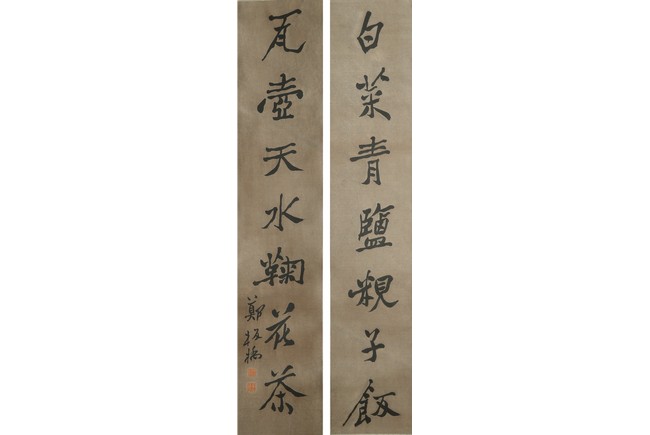 白菜青鹽粯子飯
瓦壺天水鞠花茶
鄭板橋